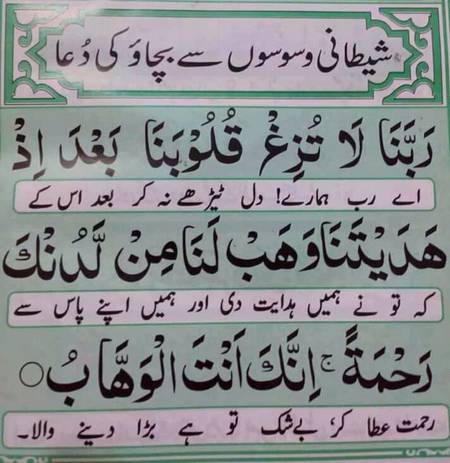 شیطانی وسوسوں سے بچاؤ کی دُعا
رَبَّنَا لَا تُزِغْ قُلُوْبَنَا بَعْدَ اِذْ
اے رب ہمارے! دل ٹیڑھے نہ کر بعد اس کے
هَدَيْتَنَا وَهَبْ لَنَا مِنْ لَّدُنْكَ
کہ تو نے ہمیں ہدایت دی اور ہمیں اپنے پاس سے
رَحْمَةً ۚ اِنَّكَ اَنْتَ الْوَهَّابُ ○
رحمت عطا کر، بے شک تو ہے بڑا دینے والا۔